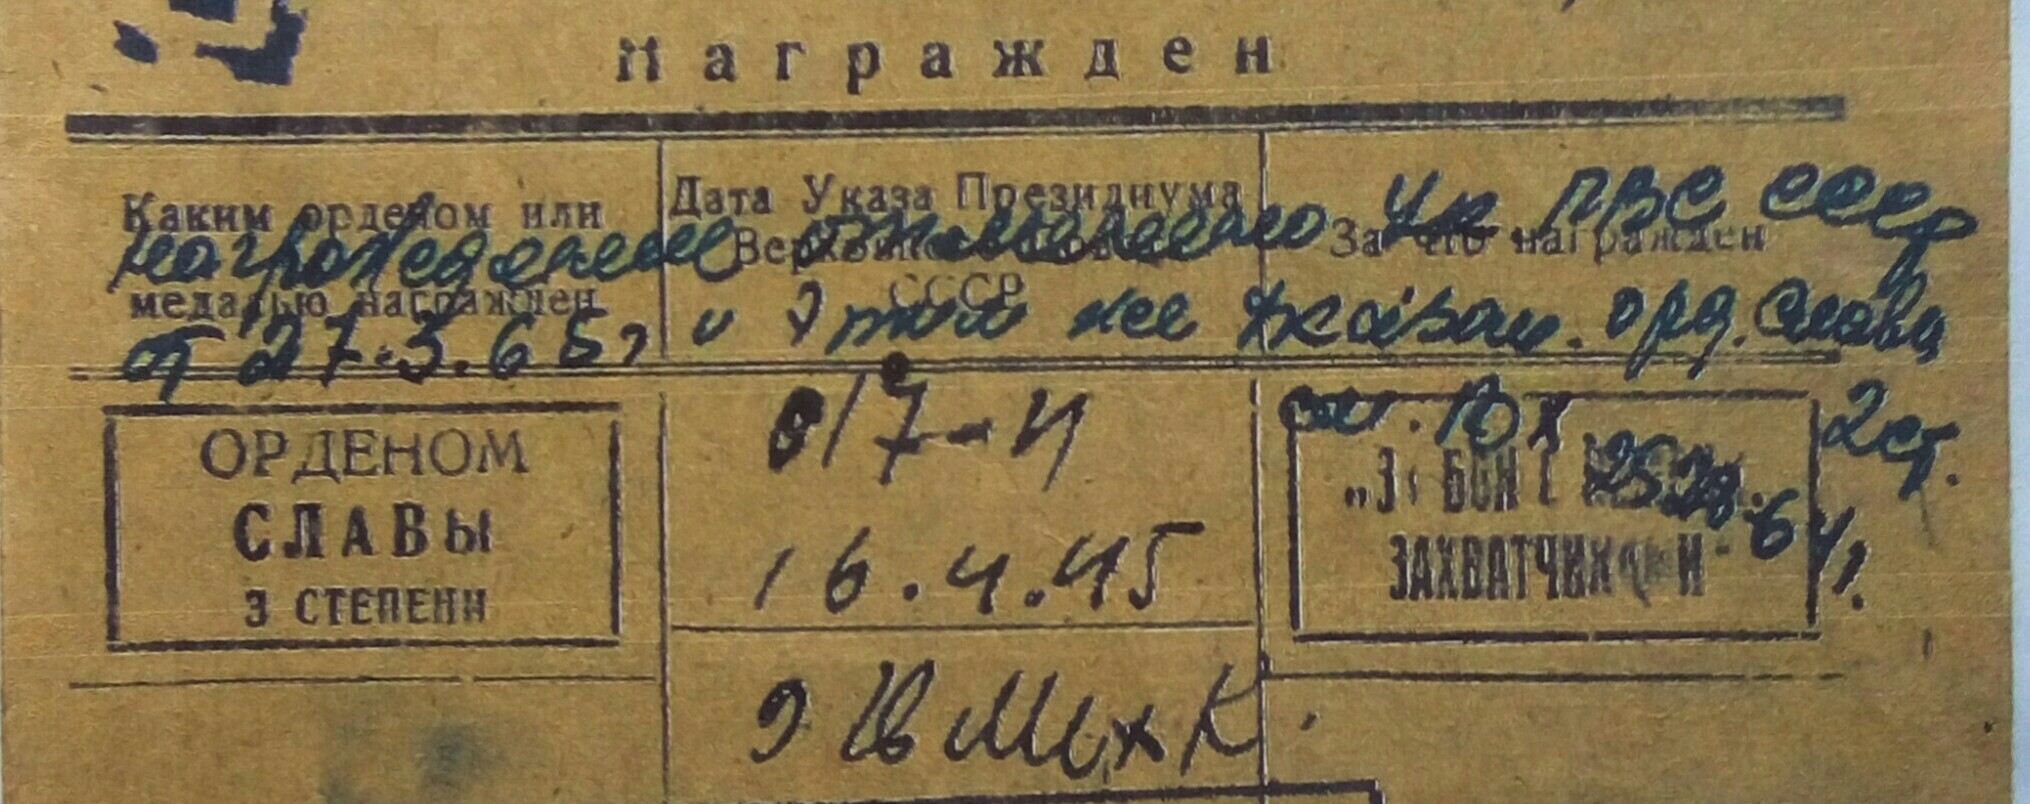 Награжден
Каким орденом или
медалью награжден
Дата Указа Президиума
Верховного Совета
СССР
За что награжден
награждение отменено Ук ПВС СССР
от 27.3.65, и этим же Указом. орд. Славы
2 ст.
ОРДЕНОМ
СЛАВЫ
3 СТЕПЕНИ
017-Н
16.4.45
„ЗА БОИ С
ЗАХВАТЧИКАМИ"